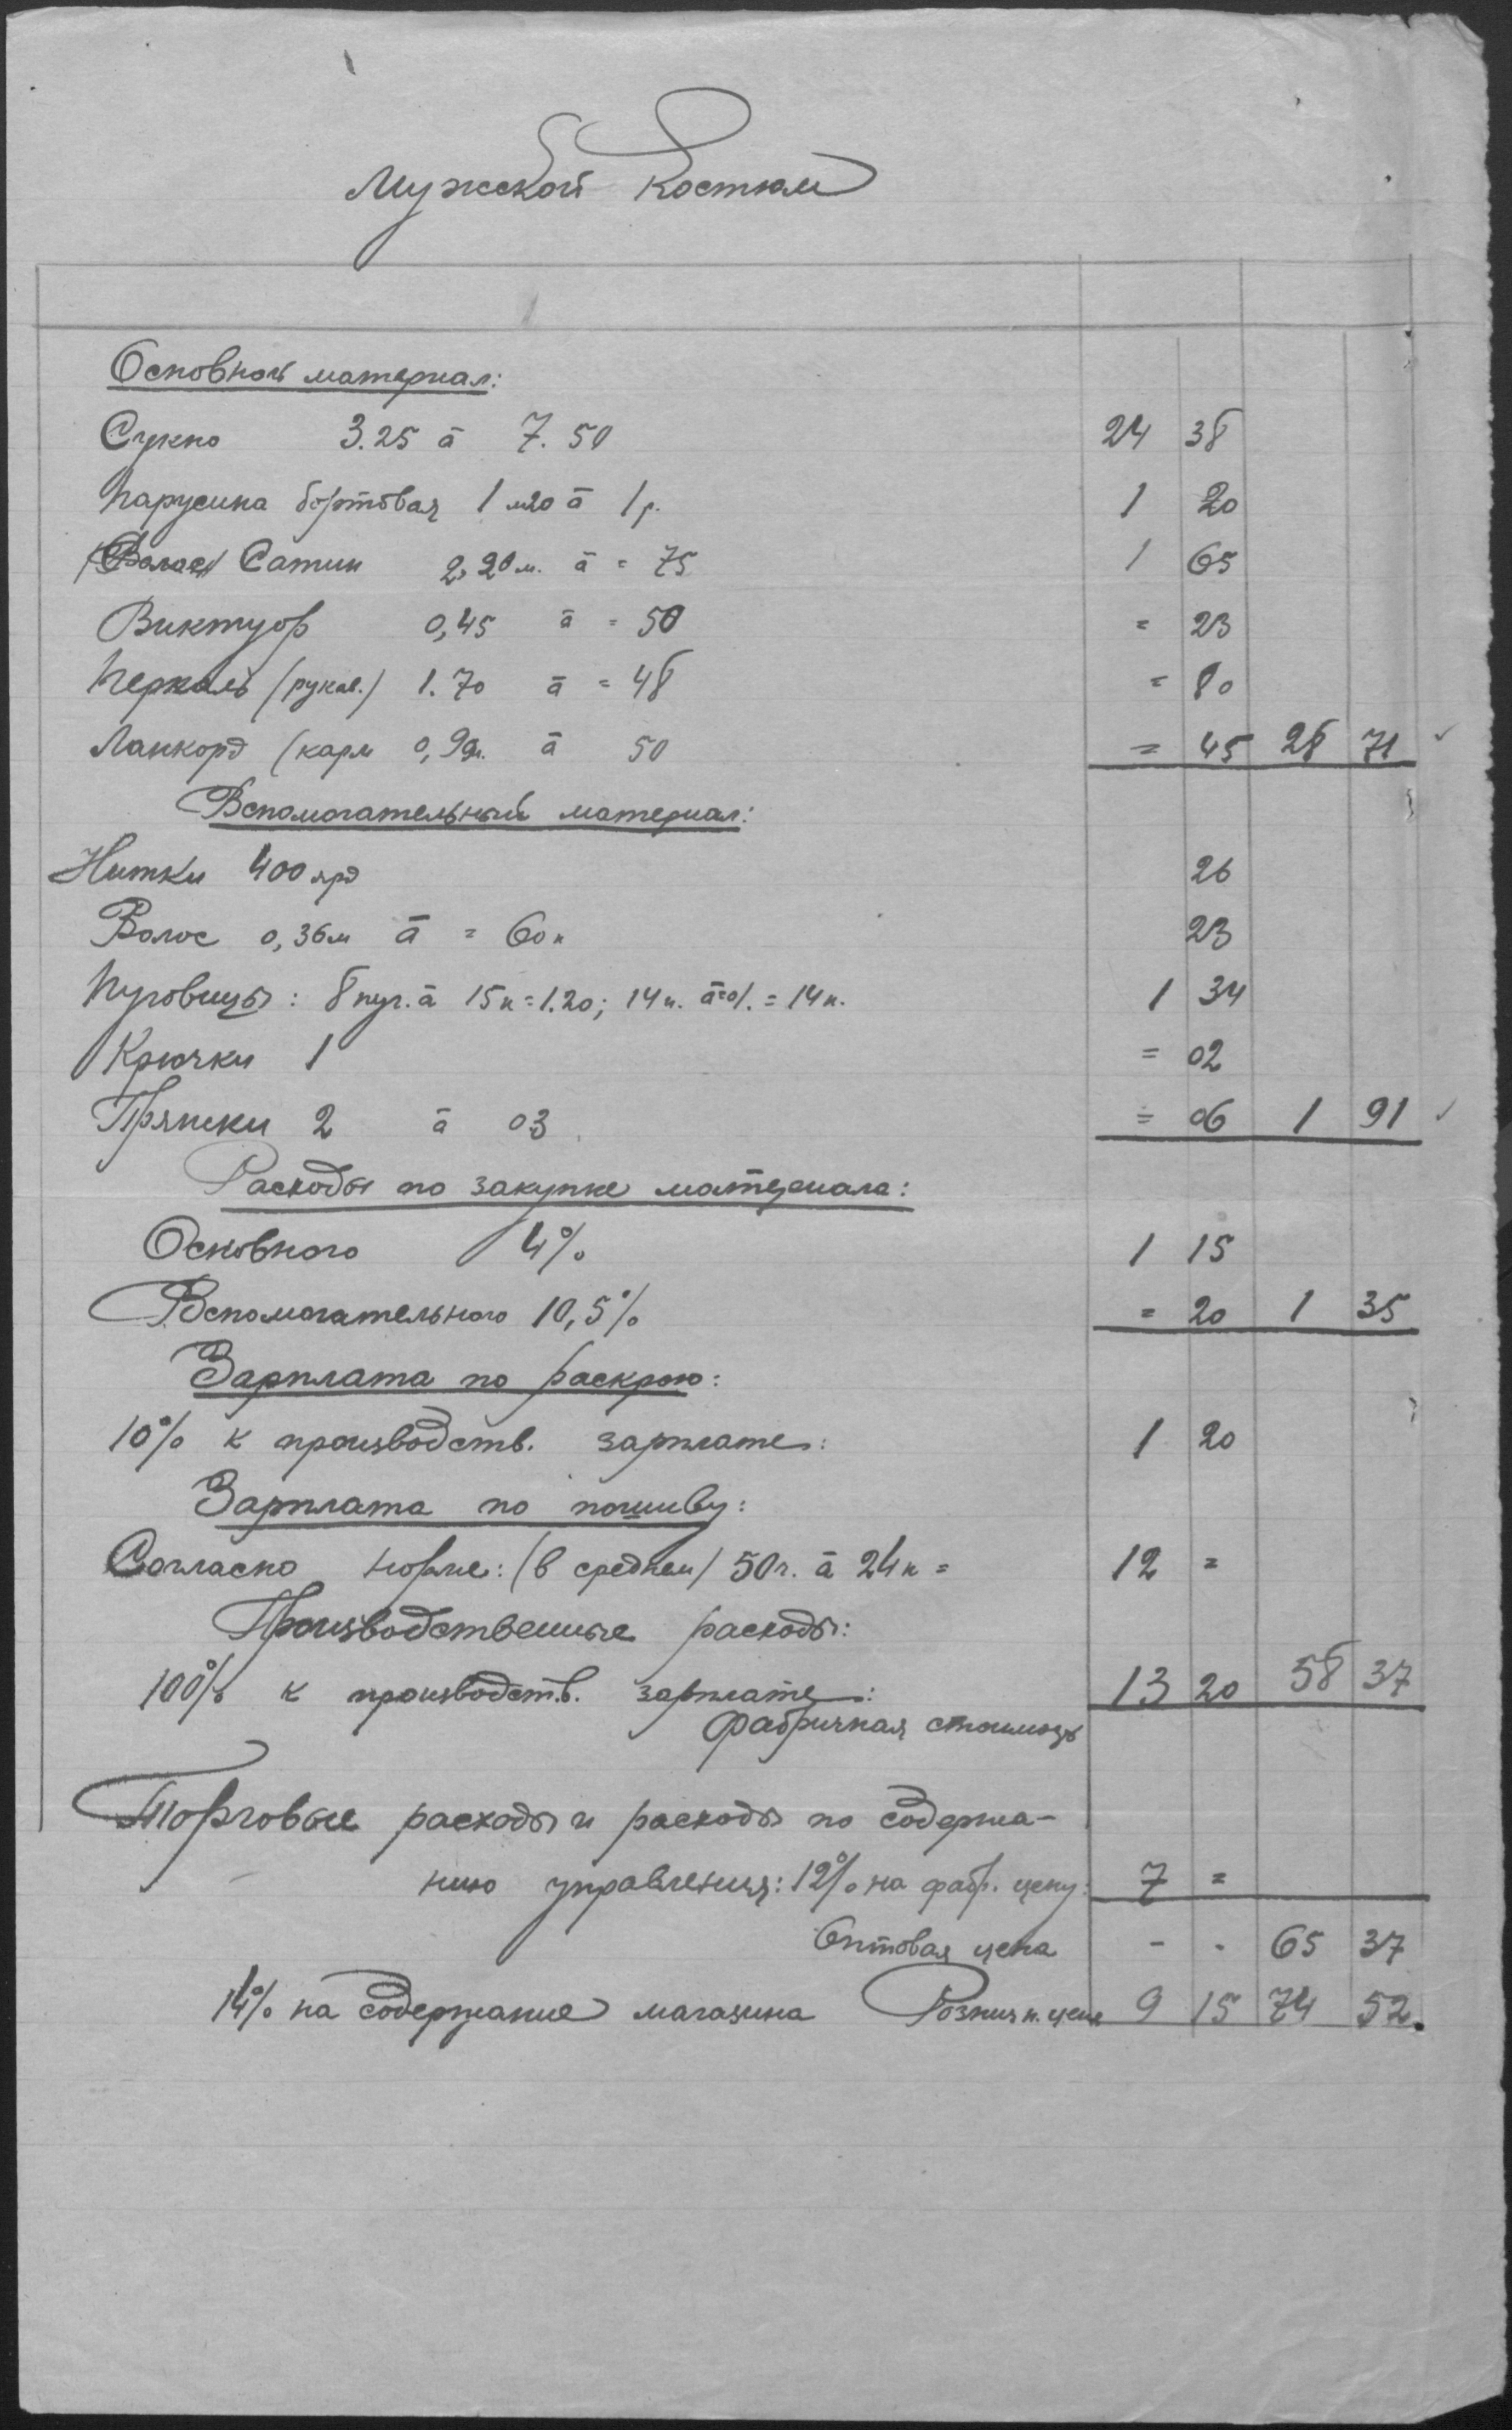 Мужской Костюм
Основной материал:
Сукно 3.25 à 7.50 24 38
Парусина бортовая 1 м20 à 1 р. 1 20
Сатин 2,20 м. à = 75 1 65
Виктуор 0,45 à = 50 = 23
Перкаль (рукав.) 1.70 à = 48 = 80
Ланкорд (карм 0,90м. à 50 = 45 28 71
Вспомогательный материал:
Нитки 400 ярд 26
Волос 0,36м à = 60к 23
Пуговицы: 8 пуг. à 15к = 1.20; 14п. à=01. = 14к. 1 34
Крючки 1 = 02
Пряжки 2 à 03 = 06 1 91
Расходы по закупке материала:
Основного 4% 1 15
Вспомогательного 10,5% = 20 1 35
Зарплата по раскрою:
10% к производств. зарплате: 1 20
Зарплата по пошиву:
Согласно норме: (в среднем) 50 г. à 24к = 12 =
Производственные расходы:
100% к производств. зарплате: 13 20 58 37
Фабричная стоимость
Торговые расходы и расходы по содержа-
нию управления: 12% на фабр. цену: 7 =
Оптовая цена - - 65 37
14% на содержание магазина Рознич. цена 9 15 74 52.